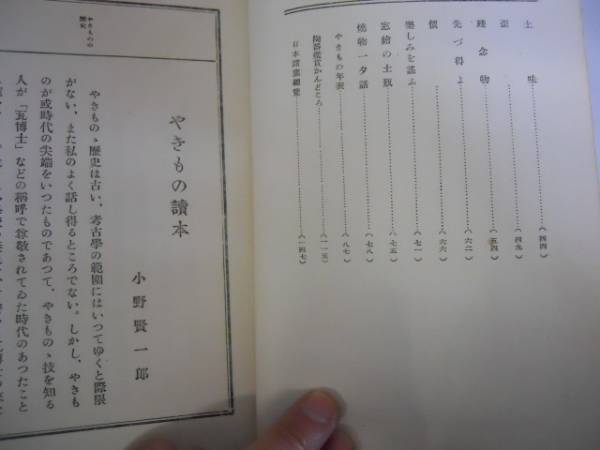 土味……………(四四)
歪……………(四九)
殘念物……………(五四)
先づ得よ……………(六二)
慾……………(六六)
樂しみを謡ふ……………(七一)
窓繪の土瓶……………(七五)
燒物一夕話……………(七八)
やきもの年表……………(八七)
陶器鑑賞かんどころ……………(一一五)
日本諸窯細覽……………(一四七)
やきものの
歷史
やきもの讀本
小野賢一郎
やきものゝ歷史は古い、考古學の範圍にはいつてゆくと際限
がない、また私のよく話し得るところでない。しかし、やきも
のが或時代の尖端をいつたものであつて、やきものゝ技を知る
人が「瓦博士」などの稱呼で尊敬されてゐた時代のあつたこと